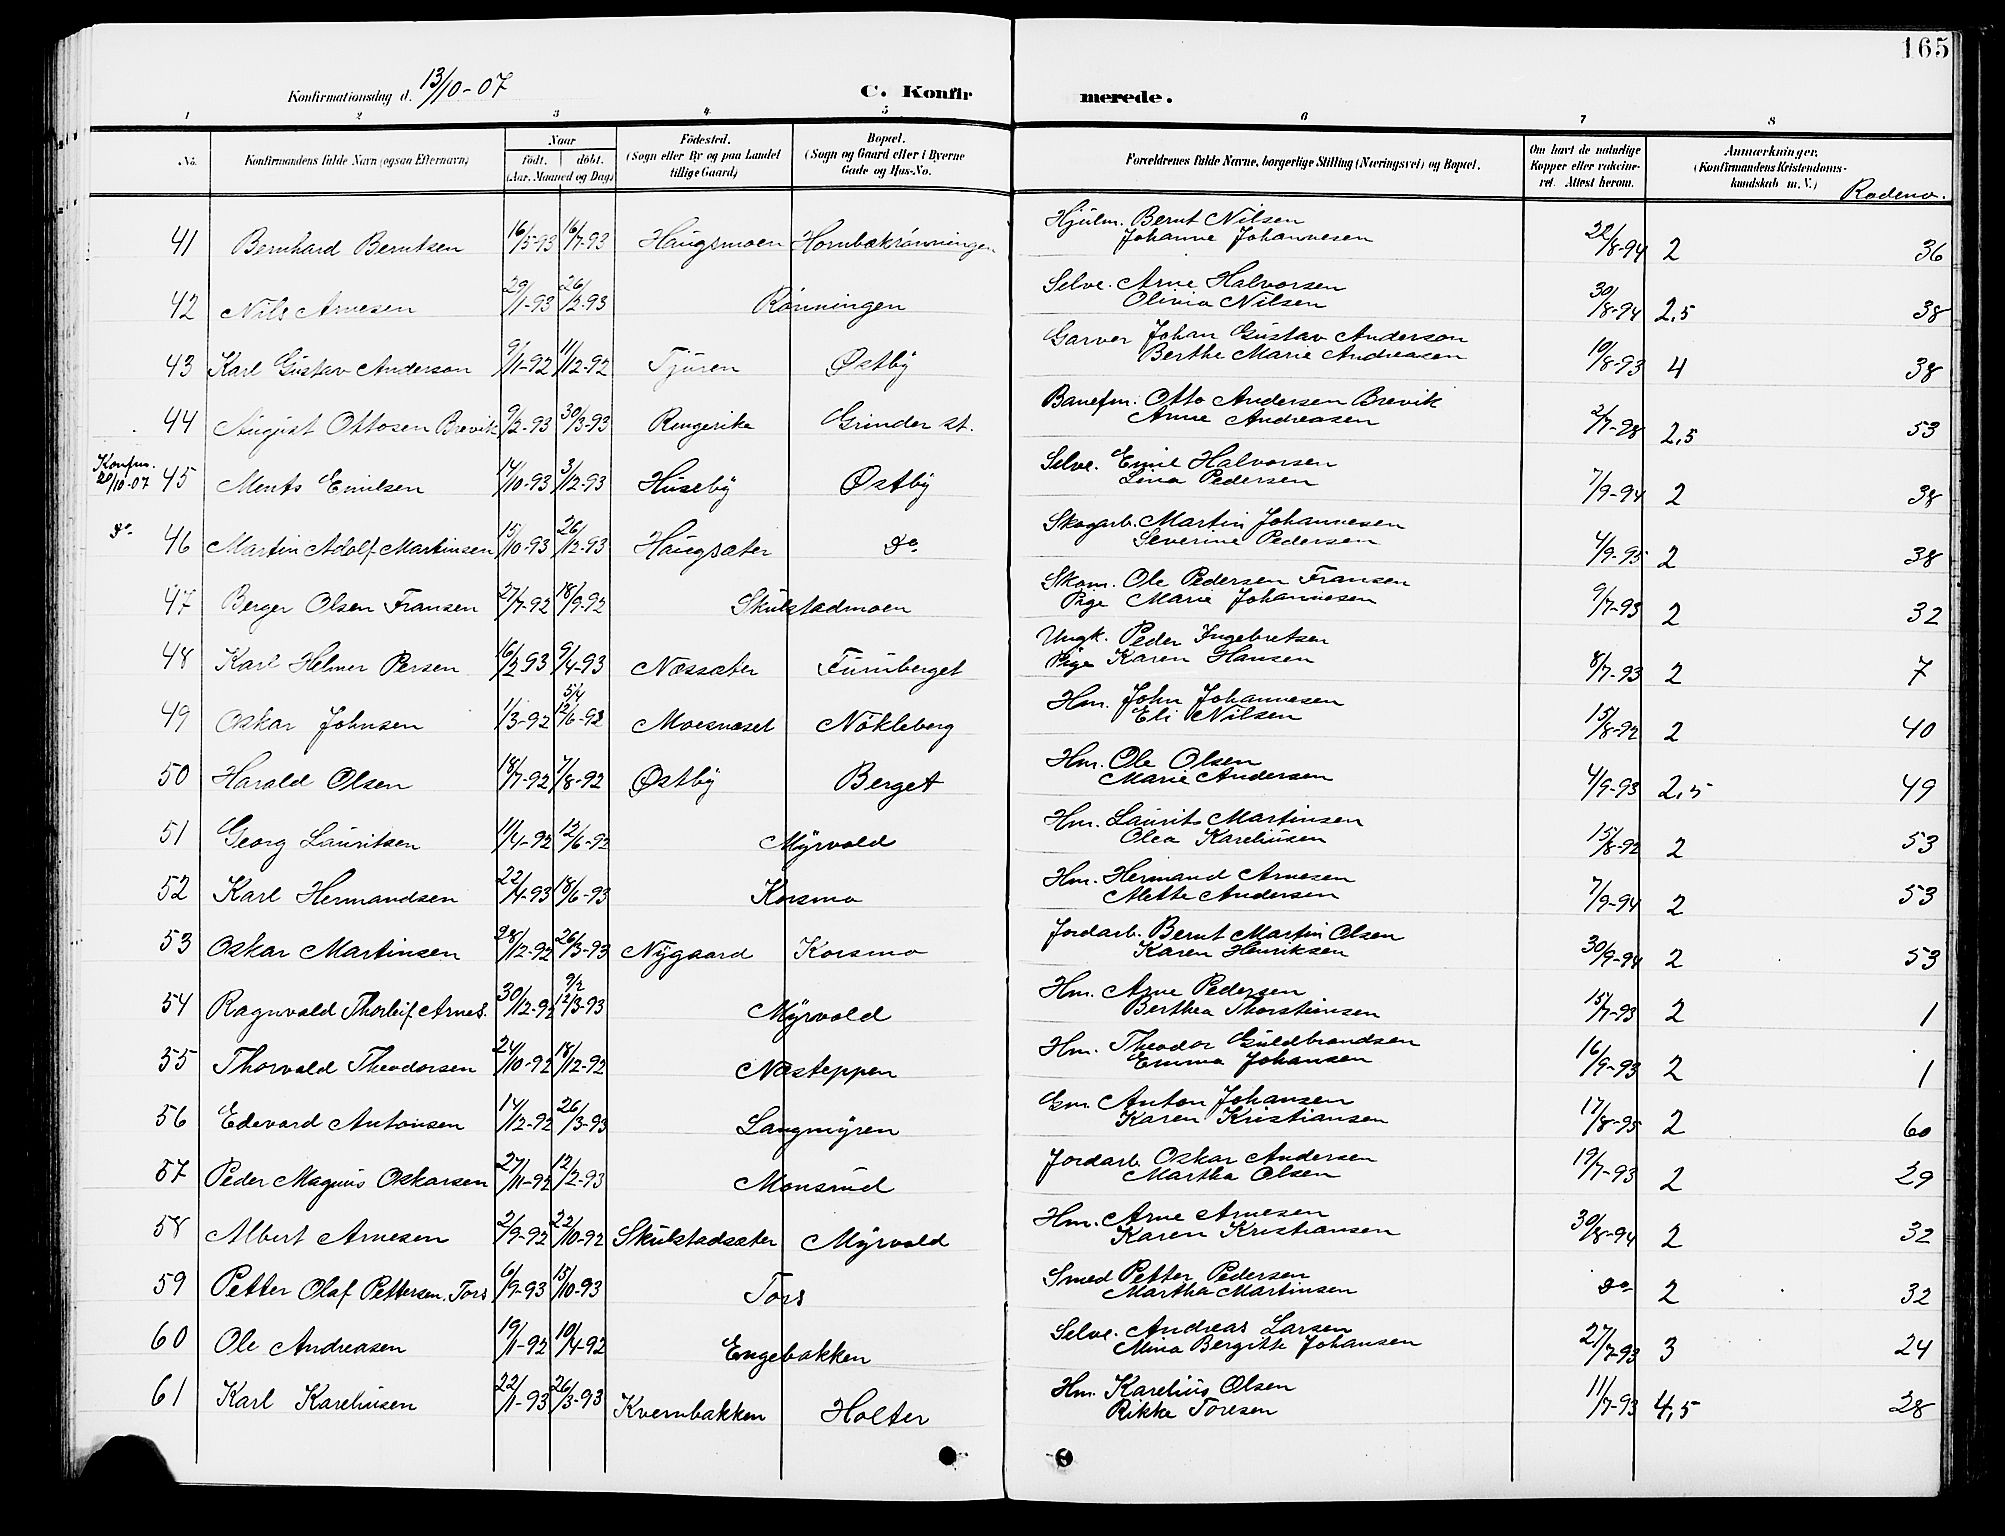 165
Konfirmationsdag d. 13/10-07 C. Konfirmerede.
1 2 3 4 5 6 7 8
No. Konfirmandens fulde Navn (ogsaa Efternavn) Naar født. døbt. (Aar, Maaned og Dag) Fødested. (Sogn eller By og paa Landet tillige Gaard) Bopæl. (Sogn og Gaard eller i Byerne Gade og Hus-No. Forældrenes fulde Navne, borgerlige Stilling (Næringsvei) og Bopæl. Om havt de naturlige Kopper eller vakcineret. Attest herom. Anmærkninger, (Konfirmandens Kristendomskundskab m. V.) Rodeno.
41 Bernhard Berntsen 16/5-93 16/7-93 Haugsmoen Hornbækrønningen Hjulm. Bernt Nilsen
Johanne Johannesen 22/8-94 2 36
42 Nils Arnesen 29/1-93 26/2-93 Rønningen Selve. Arne Halvorsen
Olivia Nilsen 30/8-94 2,5 38
43 Karl Gustav Anderson 9/11-92 11/12-92 Tjuren Østby Garver Johan Gustav Anderson
Berthe Marie Andreasen 19/8-93 4 38
44 August Ottosen Brevik 9/2-93 30/3-93 Ringerike Grinder st. Banefm. Otto Andersen Brevik
Anne Andreasen 2/7-98 2,5 53
Konfm. 20/10-07 45 Ments Emilsen 14/10-93 3/12-93 Huseby Østby Selve. Emil Halvorsen
Lina Pedersen 7/9-94 2 38
do. 46 Martin Adolf Martinsen 15/10-93 26/12-93 Haugsæter do. Skogarb. Martin Johannesen
Severine Pedersen 4/9-95 2 38
47 Berger Olsen Fransen 27/7-92 18/9-92 Skulstadmoen Skom. Ole Pedersen Fransen
Pige Marie Johannesen 9/7-93 2 32
48 Karl Helmer Persen 16/2-93 9/4-93 Næssæter Furuberget Ungk. Peder Ingebretsen
Pige Karen Hansen 8/7-93 2 7
49 Oskar Johnsen 1/3-92 5/4 12/6-92 Moesnæset Nøkleberg Hm. John Johannesen
Eli Nilsen 15/8-92 2 40
50 Harald Olsen 18/7-92 7/8-92 Østby Berget Hm. Ole Olsen
Marie Andersen 4/9-93 2,5 49
51 Georg Lauritsen 11/4-92 12/6-92 Myrvold Hm. Laurits Martinsen
Olea Kareliusen 15/8-92 2 53
52 Karl Hermandsen 22/4-93 18/6-93 Korsmo Hm. Hermand Arnesen
Mette Andersen 7/9-94 2 53
53 Oskar Martinsen 28/12-92 26/3-93 Nygaard Korsmo Jordarb. Bernt Martin Olsen
Karen Henriksen 30/9-94 2 53
54 Ragnvald Thorleif Arnes. 30/12-92 9/2 12/3-93 Myrvold Hm. Arne Pedersen
Berthea Thorsteinsen 15/7-93 2 1
55 Thorvald Theodorsen 24/10-92 18/12-92 Næsteppen Hm. Theodor Guldbrandsen
Emma Johansen 16/9-93 2 1
56 Edevard Antonsen 14/12-92 26/3-93 Langmyren Gm. Anton Johansen
Karen Kristiansen 17/8-95 2 60
57 Peder Magnus Oskarsen 27/11-92 12/2-93 Monsrud Jordarb. Oskar Andersen
Martha Olsen 19/7-93 2 29
58 Albert Arnesen 2/9-92 22/10-92 Skulstadsæter Myrvold Hm. Arne Arnesen
Karen Kristiansen 30/8-94 2 32
59 Petter Olaf Pettersen Tors 6/9-93 15/10-93 Tors Smed Petter Pedersen
Martha Martinsen do 2 32
60 Ole Andreasen 19/1-92 10/4-92 Engebakken Selve. Andreas Larsen
Mina Bergitte Johansen 27/7-93 3 24
61 Karl Kareliusen 22/1-93 26/3-93 Kvernbakken Holter Hm. Karelius Olsen
Rikke Toresen 11/7-93 4,5 28